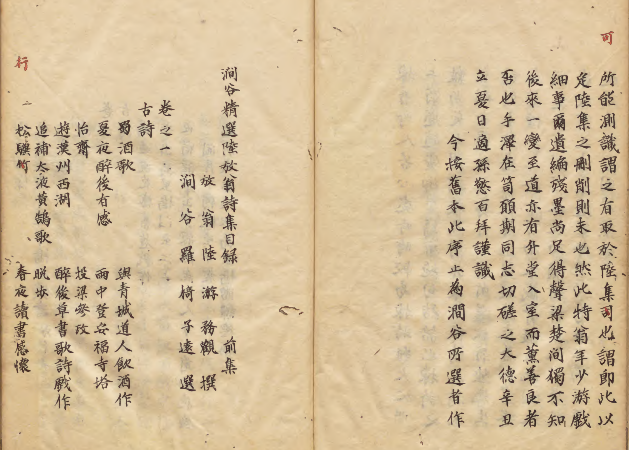 可
所能測識謂之有取於陸集司也謂即此以
定陸集之刪削則未也然此特翁年少游戲
細事爾遺編殘墨尚足得聲梁楚間獨不知
後來一變至道亦有升堂入室而薰善良者
否也手澤在笥願期同志切磋之大德辛丑
立夏日適孫懲百拜謹識
今按舊本此序止為澗谷所選者作
澗谷精選陸放翁詩集目録 前集
放翁陸游務觀撰
澗谷羅椅子遠選
卷之一
古詩
蜀酒歌 與青城道人飲酒作
夏夜醉後有感 雨中登安福寺塔
怡齋 投梁參政
遊漢州西湖 醉後草書歌詩戲作
追補太液黃鵠歌 晚步
松驥 春夜讀書感懷
行
一